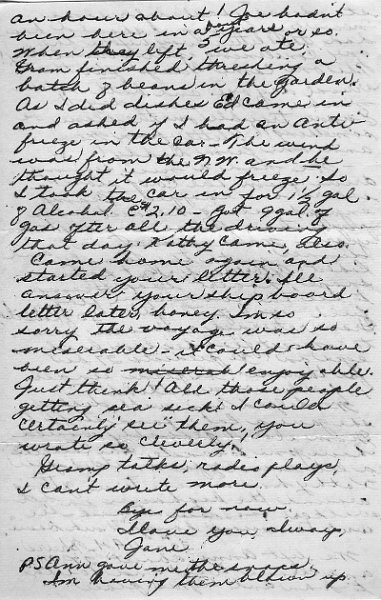 an hour about! Joe hadn't
been here in about 2 years or so.
When they left 5 we ate.
Gram finished threshing a
batch of beans in the garden.
As I did dishes Ed came in
and asked if I had an Anti-
freeze in the car - The wind
was from the N.W. and he
thought it would freeze, so
I took the car in for 1½ gal.
of Alcohol. 2.10 - Got 9 gal. of
gas after all the driving
that day. Kathy came, also.
Came home again and
started your letter. I'll
answer your ship board
letter later, honey. I'm so
sorry the voyage was so
miserable - it could have
been so miserab enjoyable.
Just think! All those people
getting sea sick! I could
certainly "see" them, you
wrote so cleverly!
Gramp talks, radio plays,
I can't write more.
Bye for now
I love you, always,
Jane
PS Ann gave me the snaps.
I'm having them blown up.